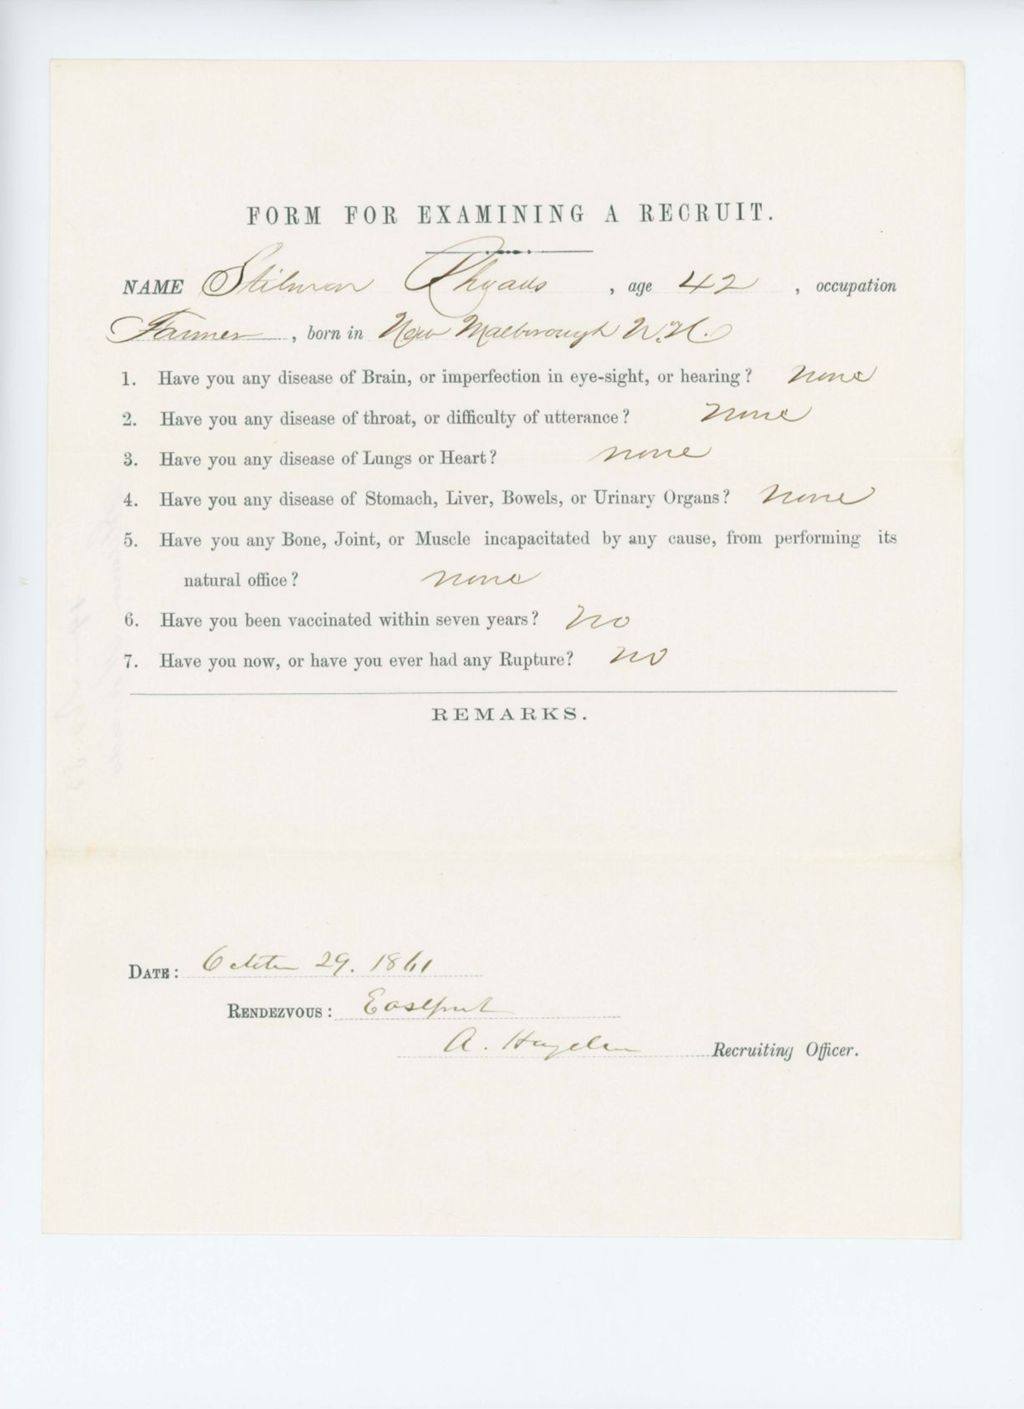 FORM FOR EXAMINING A RECRUIT.
NAME Stilman Rhoads , age 42 , occupation
Farmer , born in New Malborough N.H.
1. Have you any disease of Brain, or imperfection in eye-sight, or hearing? none
2. Have you any disease of throat, or difficulty of utterance? none
3. Have you any disease of Lungs or Heart? none
4. Have you any disease of Stomach, Liver, Bowels, or Urinary Organs? none
5. Have you any Bone, Joint, or Muscle incapacitated by any cause, from performing its
natural office? none
6. Have you been vaccinated within seven years? no
7. Have you now, or have you ever had any Rupture? no
REMARKS.
DATE: October 29. 1861
RENDEZVOUS: Eastport
A. Hayden Recruiting Officer.